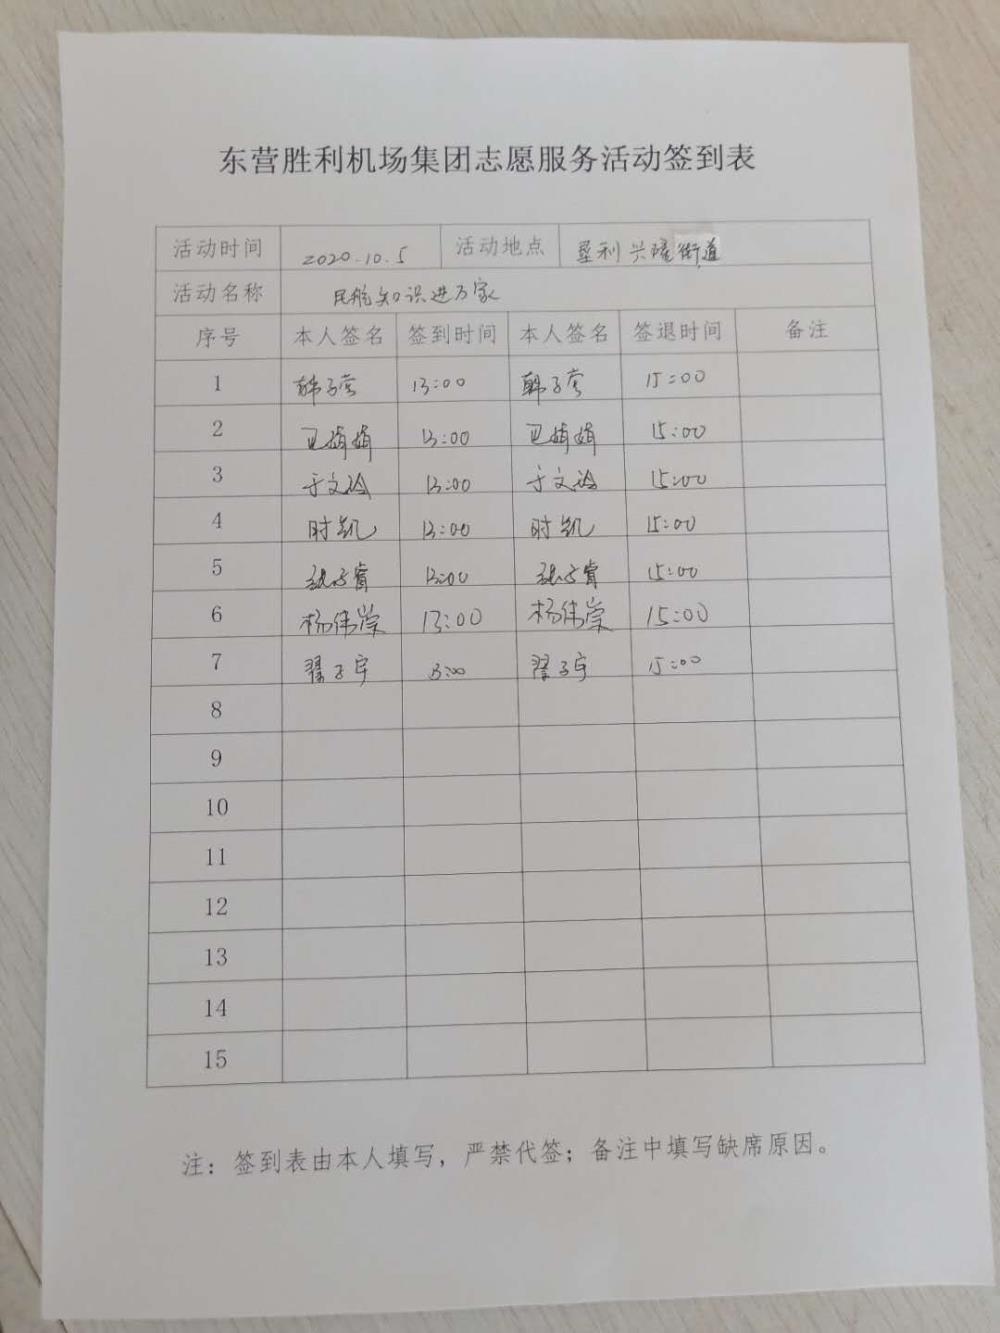 东营胜利机场集团志愿服务活动签到表
活动时间 2020.10.5 活动地点 垦利兴隆街道
活动名称 民航知识进万家
序号 本人签名 签到时间 本人签名 签退时间 备注
1 韩子营 13:00 韩子营 15:00
2 卫娟娟 13:00 卫娟娟 15:00
3 于文玲 13:00 于文玲 15:00
4 时凯 13:00 时凯 15:00
5 张子睿 13:00 张子睿 15:00
6 杨伟崇 13:00 杨伟崇 15:00
7 翟子宇 13:00 翟子宇 15:00
8
9
10
11
12
13
14
15
注：签到表由本人填写，严禁代签；备注中填写缺席原因。